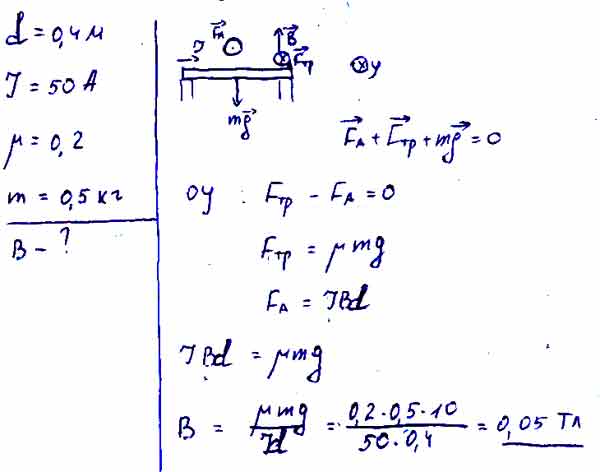 d = 0,4 м
J = 50 А
μ = 0,2
m = 0,5 кг
B - ?
F⃗А
J
B⃗
F⃗тр
y
mg⃗
F⃗А + F⃗тр + mg⃗ = 0
оy : Fтр - FА = 0
Fтр = μmg
FА = JBd
JBd = μmg
B = μmg/Jd = 0,2·0,5·10/50·0,4 = 0,05 Тл